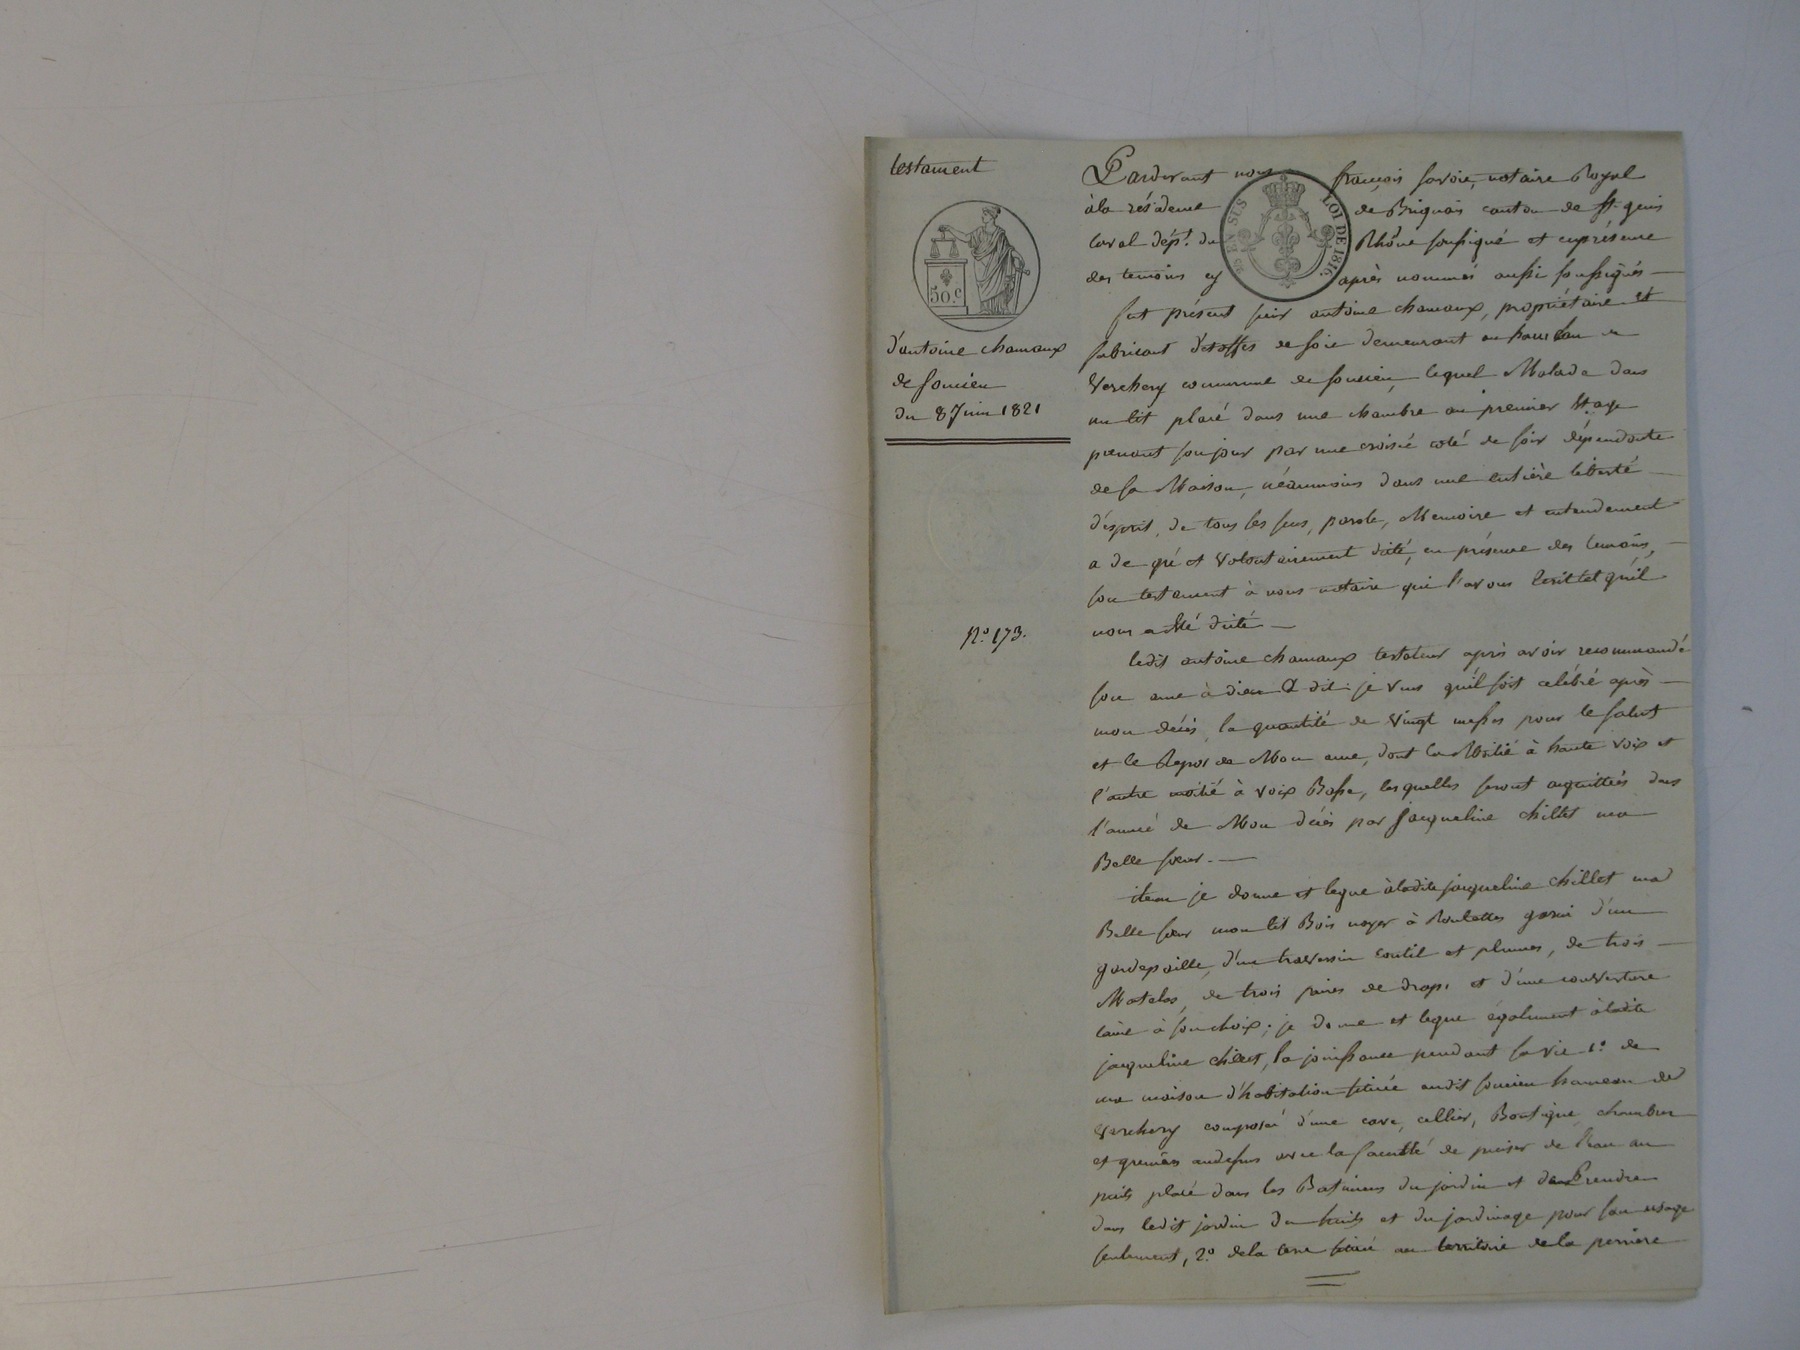 testament
50.c
d'antoine chamaux
de soucieu
du 8 Juin 1821
N.o 173.
EN SUS LOI DE 1816.
Pardevant nous françois savoie, notaire Royal
à la résidence de Brignais canton de st. genis
laval dép.t du Rhône soussigné et en présence
des temoins cy après nommés aussi soussignés
fut présent sieur antoine chamaux, propriétaire et
fabricant d'étoffes de soie demeurant au hameau
Verchery commune de soucieu, lequel Malade dans
un lit placé dans une chambre au premier Etage
prenant son jour par une croisée coté de soir dépendante
de sa Maison, néanmoins dans une entière liberté
d'esprit, de tous ses sens, parole, Memoire et entendement
a de gré et Volontairement dicté, en présence des temoins,
son testament à nous notaire qui l'avons Ecrit tel qu'il
nous a Eté dicté
ledit antoine chamaux testateur après avoir recommandé
son ame à dieu a dit: je veus qu'il soit célébré après
mon décès, la quantité de Vingt messes pour le salut
et le Repos de Mon ame, dont la Moitié à haute Voix et
l'autre moitié à Voix Basse, lesquelles seront acquittées dans
l'année de Mon décès par Jacqueline chillet ma
Belle soeur.
item je donne et legue à ladite jacqueline chillet ma
Belle soeur mon lit Bois noyer à Roulettes garni d'un
gardepaille, d'un traversin coutil et plumes, de trois
Matelas, de trois paires de draps et d'une couverture
laine à son choix; je donne et legue également à ladite
jacqueline chillet, la jouissance pendant sa vie 1.o de
ma maison d'habitation située audit soucieu hameau de
Verchery composée d'une cave, cellier, Boutique, chambres
et greniers audessus avec la faculté de puiser de l'eau au
puits placé dans les Batimens du jardin et de Prendre
dans ledit jardin du fruits et du jardinage pour son usage
seulement, 2.o de la terre située au territoire de la perrière